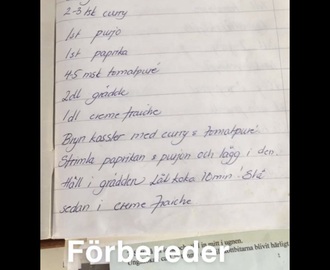 2-3 tsk curry
1st purjo
1st paprika
4-5 msk tomatpuré
2dl grädde
1dl creme fraiche
Bryn kassler med curry & tomatpuré
Strimla paprikan & purjon och lägg i den.
Häll i grädden Låt koka 10min. Slå
sedan i creme fraiche
mitt i ugnen.
blivit härligt
Förbereder